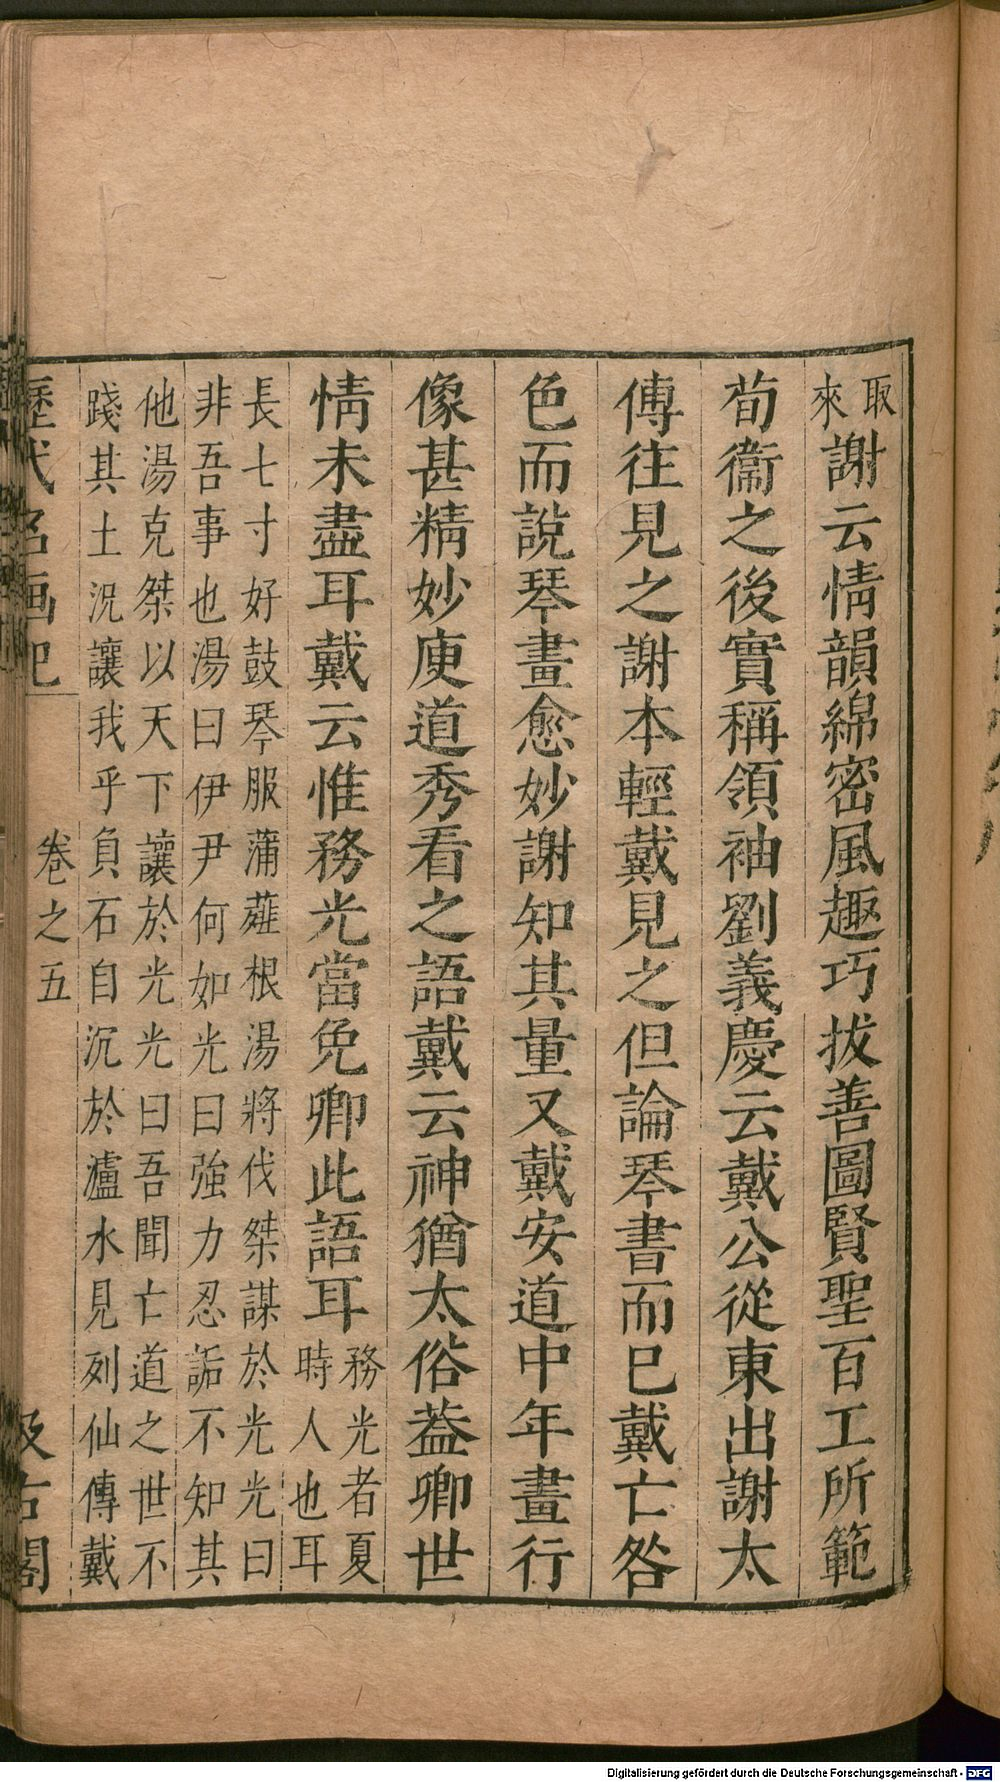 取
來
謝云情韻綿密風趣巧拔善圖賢聖百工所範
荀衞之後實稱領袖劉義慶云戴公從東出謝太
傅往見之謝本輕戴見之但論琴書而巳戴亡咎
色而說琴畫愈妙謝知其量又戴安道中年畫行
像甚精妙庾道秀看之語戴云神猶太俗葢卿世
情未盡耳戴云惟務光當免卿此語耳
務光者夏
時人也耳
長七寸好鼓琴服蒲薤根湯將伐桀謀於光光曰
非吾事也湯曰伊尹何如光曰強力忍詬不知其
他湯克桀以天下讓於光光曰吾聞亡道之世不
踐其土況讓我乎負石自沉於瀘水見列仙傳戴
歷代名画记 卷之五 汲古閣
Digitalisierung gefördert durch die Deutsche Forschungsgemeinschaft - DFG